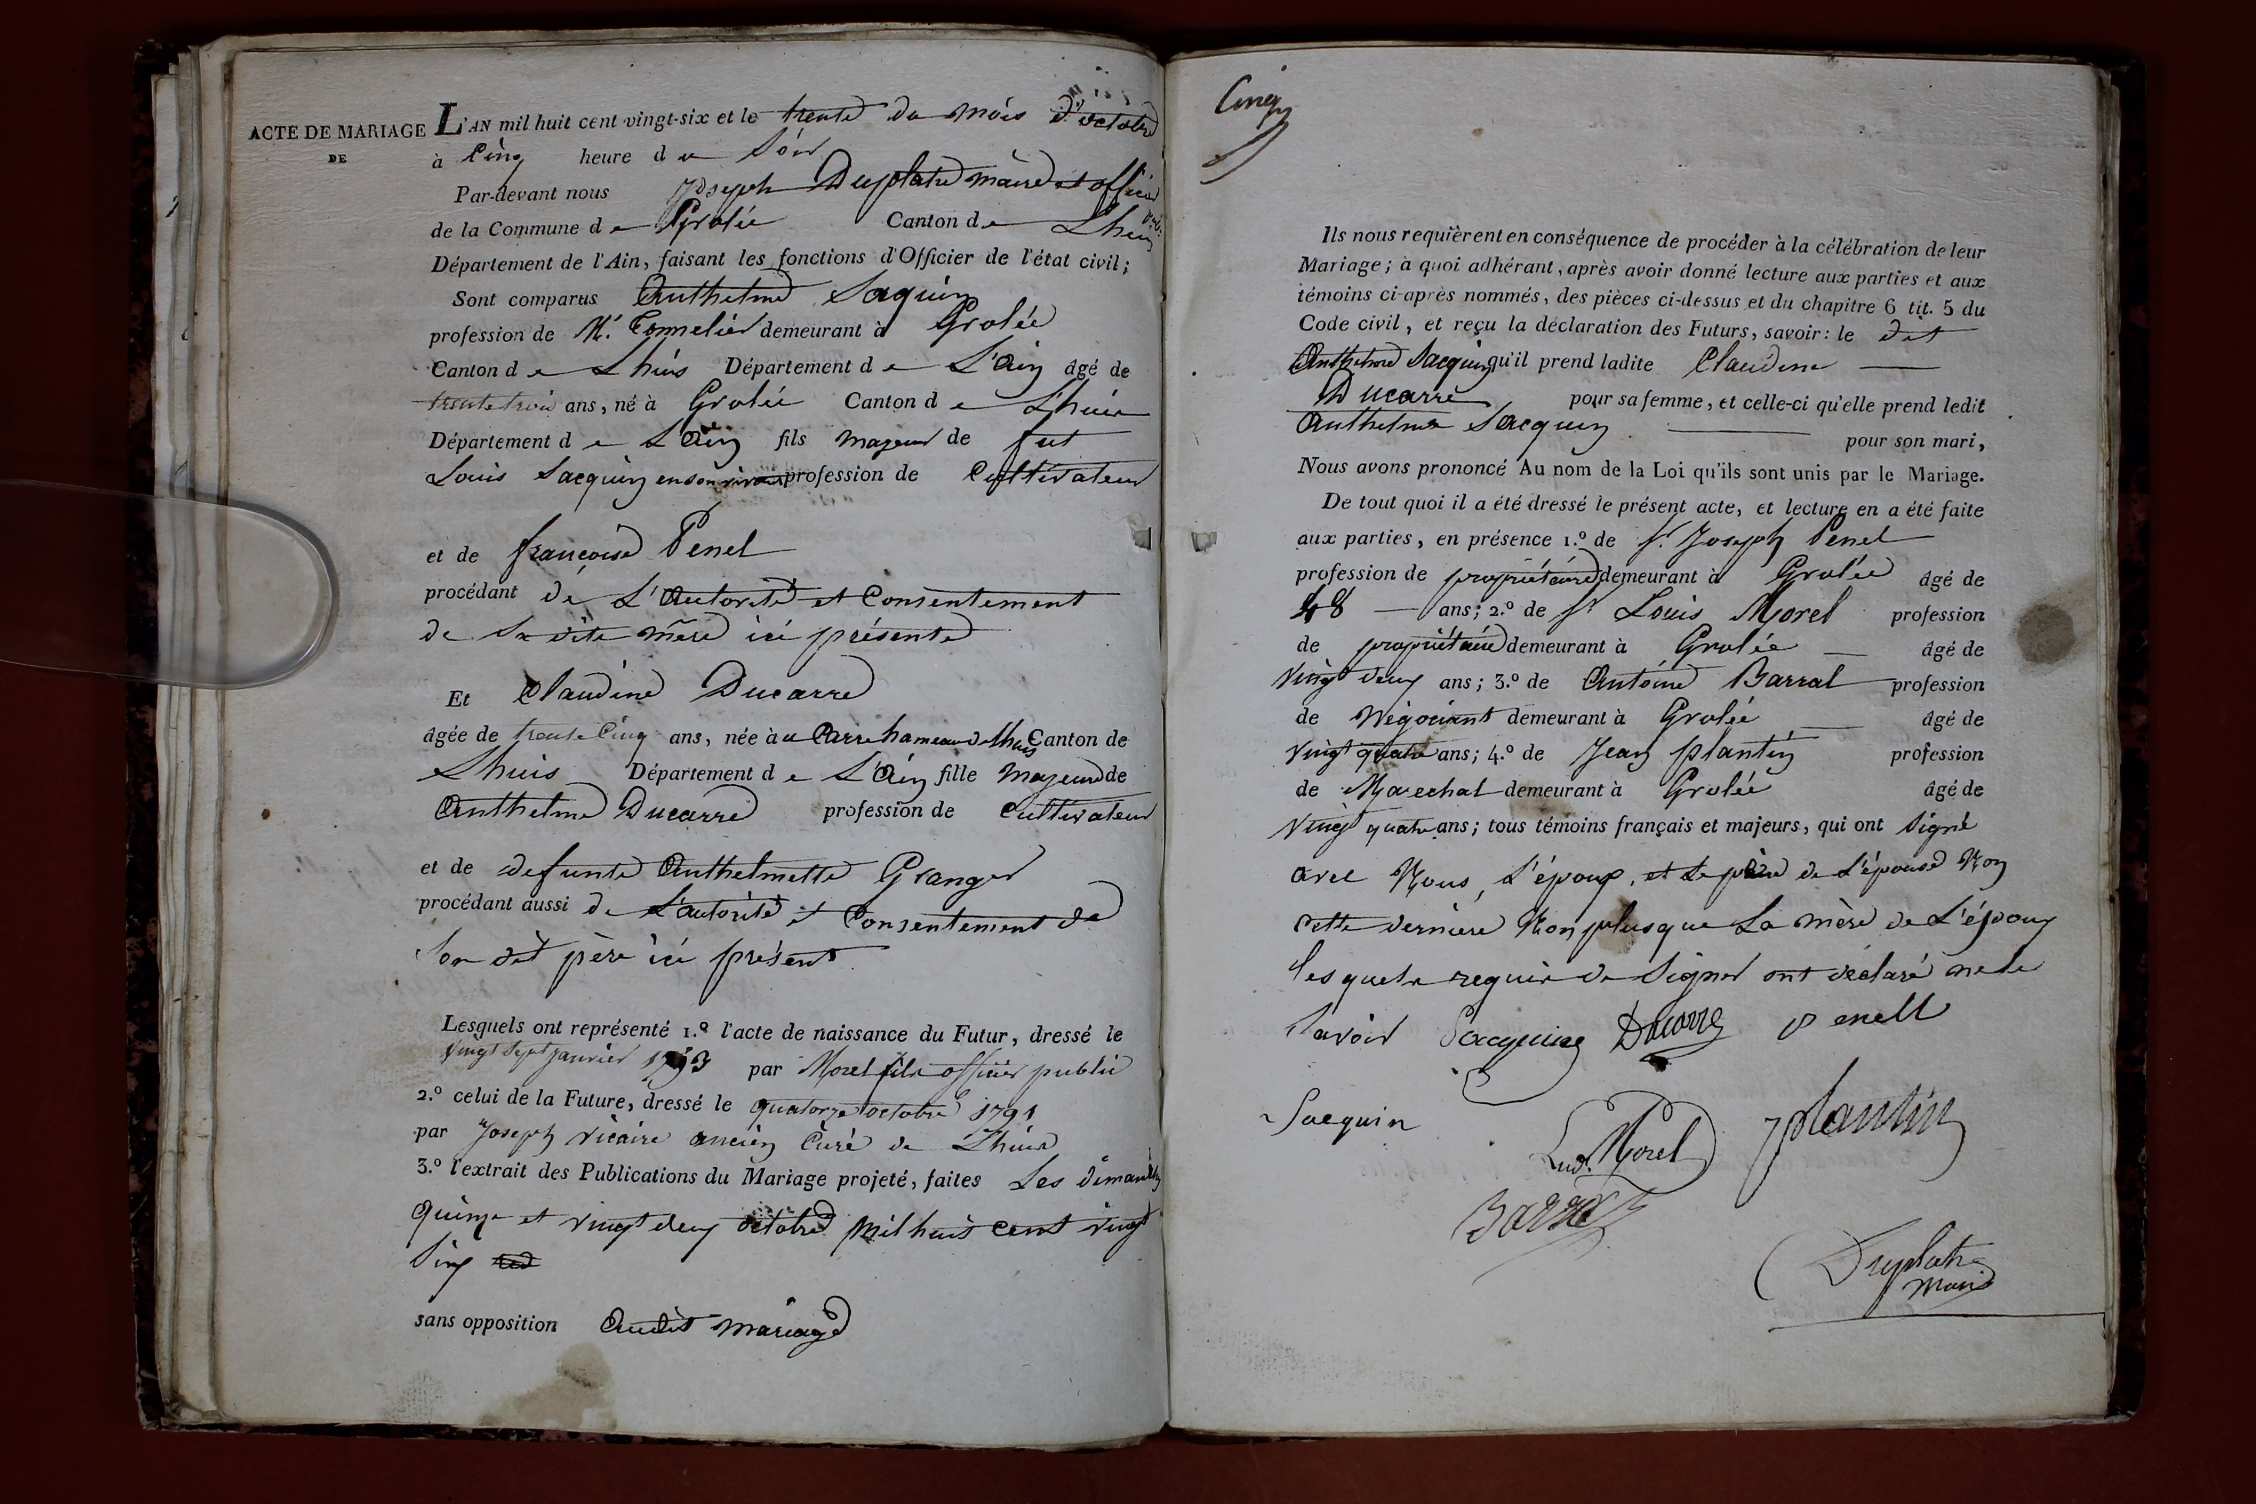 ACTE DE MARIAGE
DE
L'AN mil huit cent vingt-six et le trente du mois d'octobre
à Cinq heure du Soir
Par-devant nous Joseph Duplatre maire et officier
de la Commune de Grolée Canton de Lhuis
Département de l'Ain, faisant les fonctions d'Officier de l'état civil;
Sont comparus Anthelme Saquin
profession de Md. Tonnelier demeurant à Grolée
Canton de Lhuis Département de L'Ain âgé de
trente trois ans, né à Grolée Canton de Lhuis
Département de L'Ain fils majeur de fut
Louis Sacquin en son vivant profession de Cultivateur
et de françoise Penel
procédant de L'Autorité et Consentement
de Sa dite mère ici présente
Et Claudine Ducarre
âgée de trente Cinq ans, née à u Carre hameau de lhuis Canton de
Lhuis Département de L'Ain fille majeure de
Anthelme Ducarre profession de Cultivateur
et de defunte Anthelmette Granger
procédant aussi de L'autorité et Consentement de
Son dit père ici présent
Lesquels ont représenté 1.º l'acte de naissance du Futur, dressé le
vingt Sept janvier 1793 par Morel fils officier public
2.º celui de la Future, dressé le quatorze octobre 1791
par Joseph vicaire ancien Curé de Lhuis
3.º l'extrait des Publications du Mariage projeté, faites Les dimanches
quinze et vingt deux octobre mil huit cent vingt
Six
sans opposition Audit mariage
Cinq
Ils nous requièrent en conséquence de procéder à la célébration de leur
Mariage; à quoi adhérant, après avoir donné lecture aux parties et aux
témoins ci-après nommés, des pièces ci-dessus et du chapitre 6 tit. 5 du
Code civil, et reçu la déclaration des Futurs, savoir: le dit
Anthelme Sacquin qu'il prend ladite Claudine
Ducarre pour sa femme, et celle-ci qu'elle prend ledit
Anthelme Sacquin pour son mari,
Nous avons prononcé Au nom de la Loi qu'ils sont unis par le Mariage.
De tout quoi il a été dressé le présent acte, et lecture en a été faite
aux parties, en présence 1.º de Sr. Joseph Penel
profession de propriétaire demeurant à Grolée âgé de
48 ans; 2.º de Sr Louis Morel profession
de propriétaire demeurant à Grolée âgé de
vingt deux ans; 3.º de Antoine Barral profession
de Négociant demeurant à Grolée âgé de
vingt quatre ans; 4.º de Jean plantin profession
de Marechal demeurant à Grolée âgé de
vingt quatre ans; tous témoins français et majeurs, qui ont signé
avec Nous, L'époux, et Le père de L'épouse Non
cette derniere Non plus que La mère de L'époux
Lesquels requis de Signer ont déclaré ne le
Savoir Sacquin Ducarre Penell
Sacquin
Lud. Morel
J plantin
Barral
Duplatre
maire